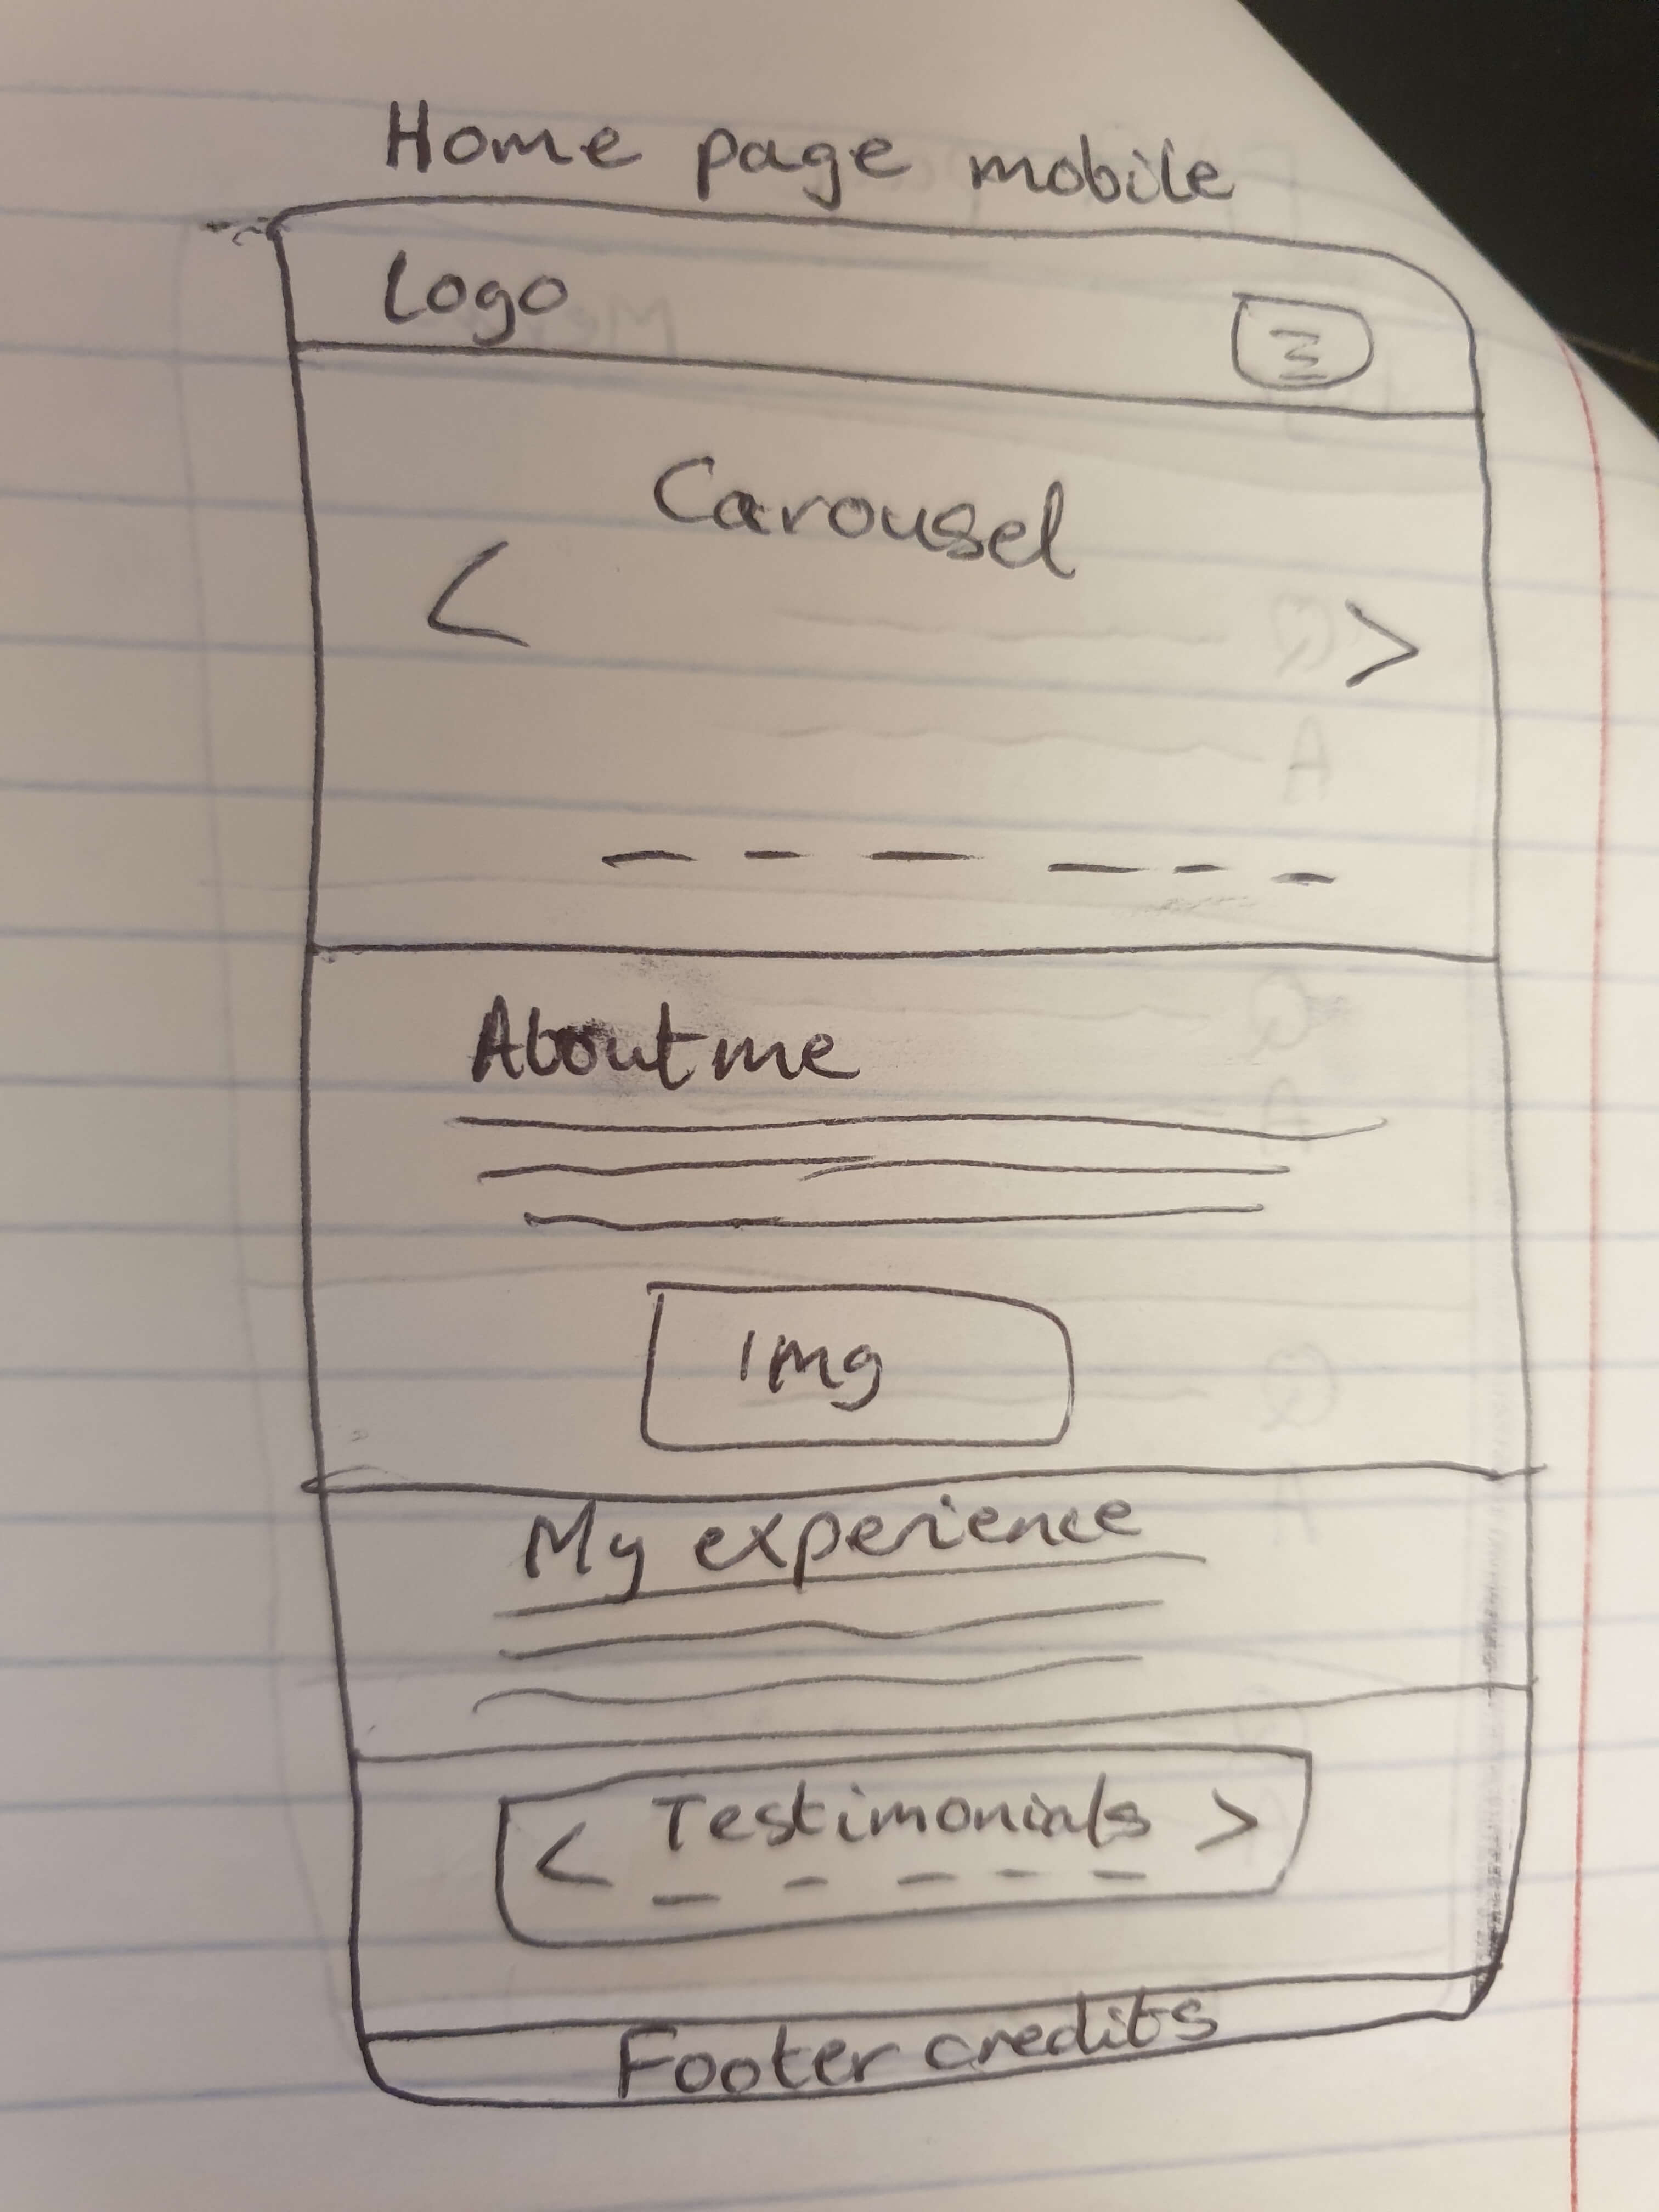 Home page mobile
Logo
Carousel
< >
About me
Img
My experience
< Testimonials >
Footer credits